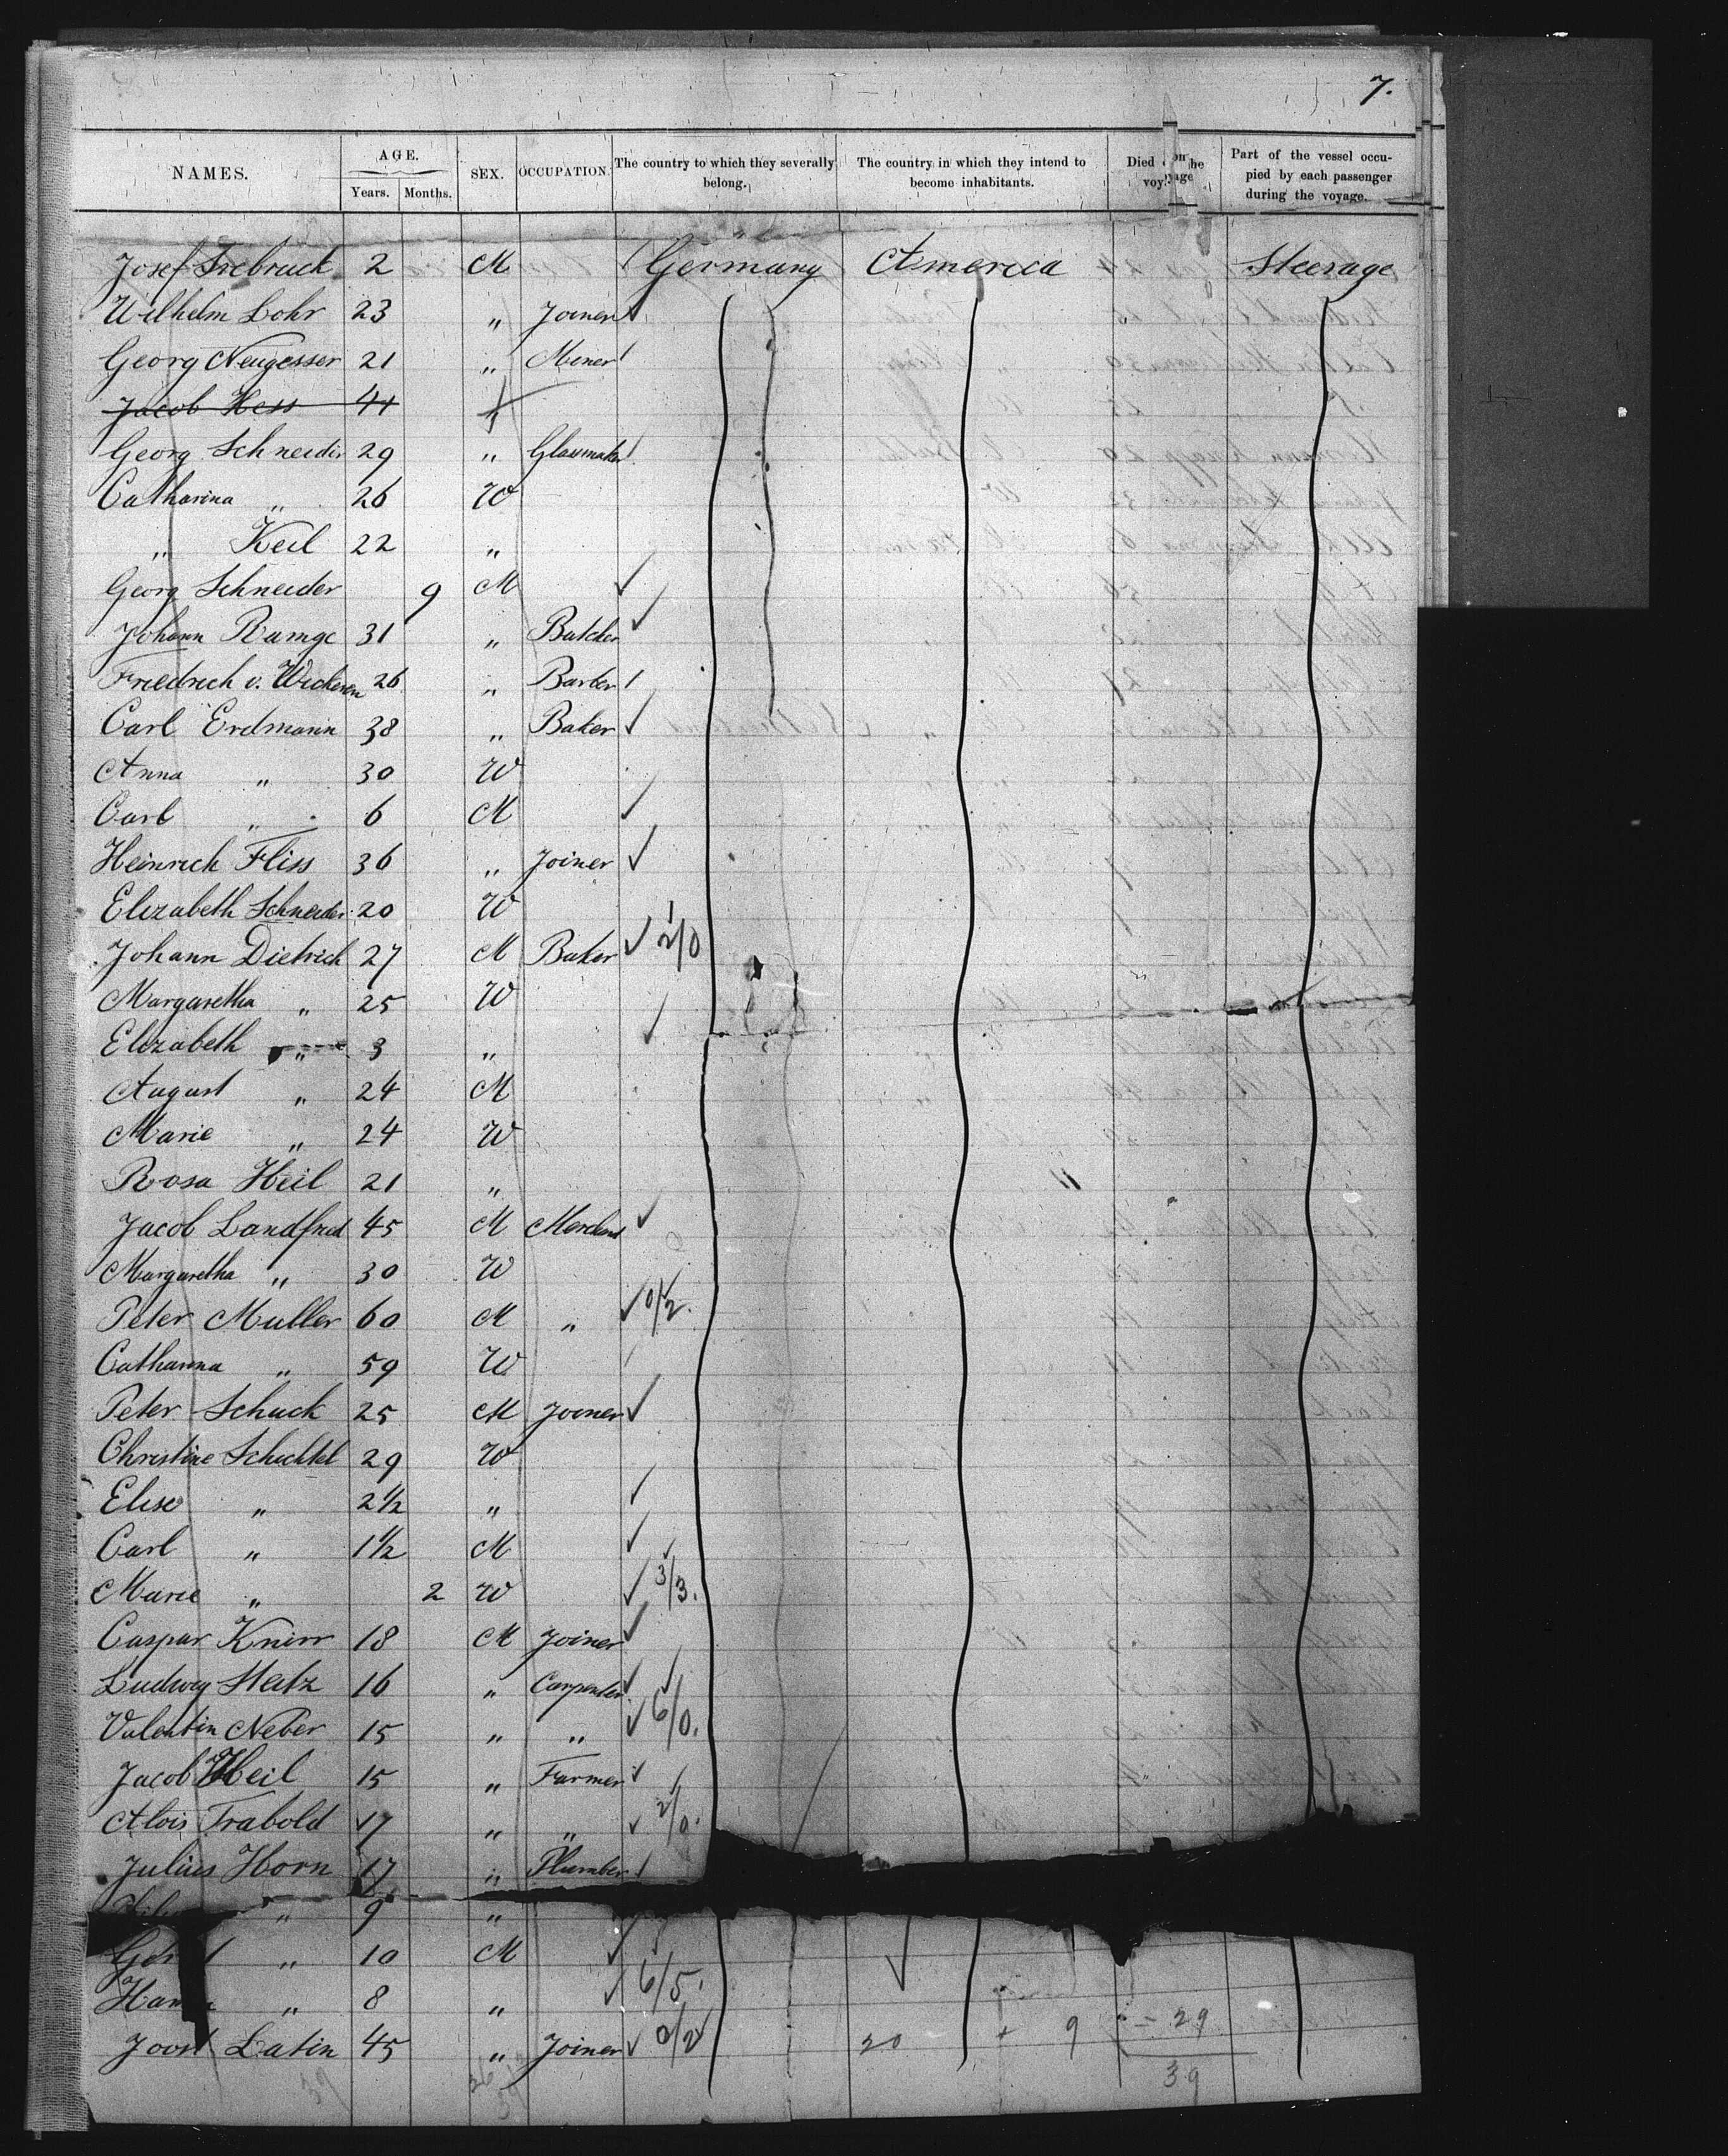 7.
NAMES. AGE. Years. Months. SEX. OCCUPATION. The country to which they severally belong. The country in which they intend to become inhabitants. Died on the voyage Part of the vessel occupied by each passenger during the voyage.
Josef 2 M Germany America Steerage
Wilhelm Lohr 23 " Joiner
Georg Neugesser 21 " Miner
Jacob Hess 41 "
Georg Schneider 29 " Glasmaker
Catharina " 26 W
" Keil 22 "
Georg Schneider 9 M
Johann Ramge 31 " Butcher
Friedrich v. Wickeren 26 " Barber
Carl Erdmann 38 " Baker
Anna " 30 W
Carl " 6 M
Heinrich Fliss 36 " Joiner
Elizabeth Schneider 20 W
Johann Dietrich 27 M Baker 2/0
Margaretha " 25 W
Elizabeth " 3 "
August " 24 M
Marie " 24 W
Rosa Heil 21 "
Jacob Landfried 45 M
Margaretha " 30 W
Peter Muller 60 M " 0/2.
Catharina " 59 W
Peter Schuck 25 M Joiner
Christine Schichtel 29 W
Elise " 2 1/2 "
Carl " 1 1/2 M
Marie " 2 W 3/3.
Caspar Knirr 18 M Joiner
Ludwig 16 " Carpenter
Valentin Neber 15 " " 6/0.
Jacob Heil 15 " Farmer
Alois Trabold 17 " " 2/0.
Julius Horn 17 " Plumber
" 9 "
" 10 M
" 8 " 6/5.
Joost Latin 45 " Joiner 0/2 20 + 9 = 29
39